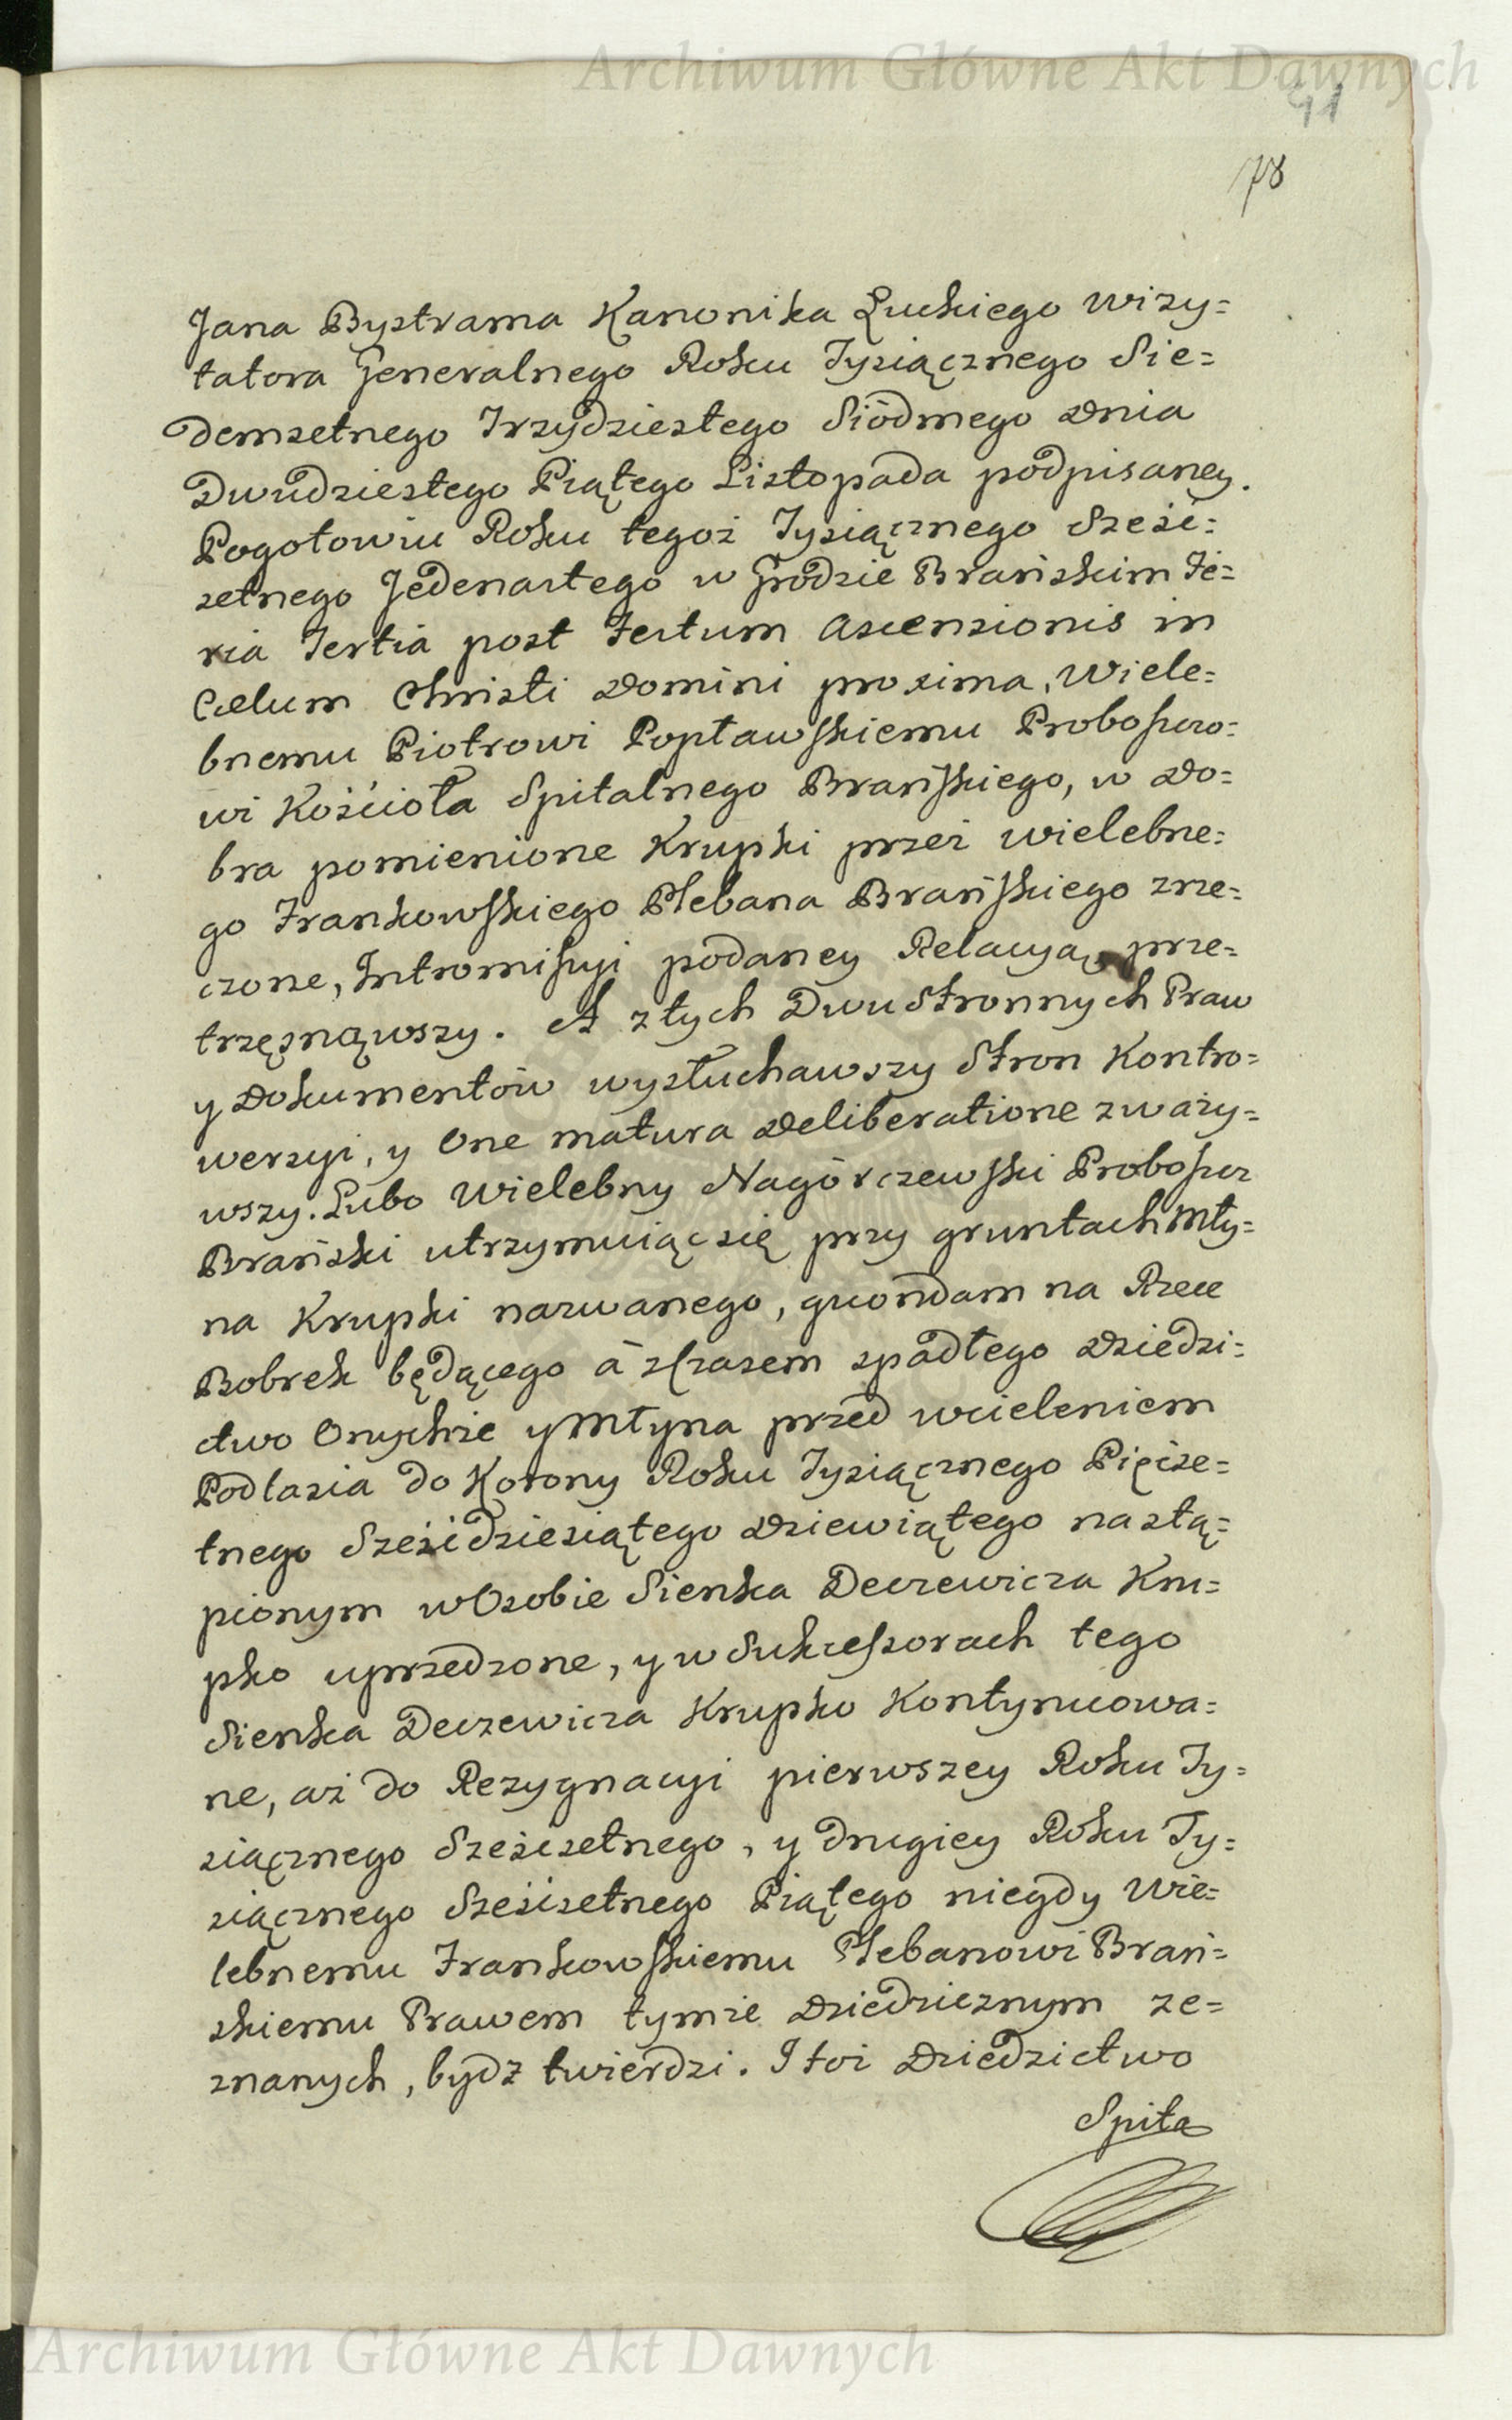 Archiwum Główne Akt Dawnych
41
78
Jana Bystrama Kanonika Łuckiego Wizy=
tatora Generalnego Roku Tysiącznego Sie=
demsetnego Trzydziestego Siódmego Dnia
Dwudziestego Piątego Listopada podpisaney.
Pogotowiu Roku tegoż Tysiącznego Sześć=
setnego Jedenastego w Grodzie Brańskim Fe=
ria Tertia post Festum Ascensionis in
Cælum Christi Domini proxima, Wiele=
bnemu Piotrowi Popławskiemu Proboszczo=
wi Kościoła Szpitalnego Brańskiego, w Do=
bra pomienione Krupki przez Wielebne=
go Frankowskiego Plebana Brańskiego zrze=
czone, Intromissyi podaney Relacyą prze=
trzęsnąwszy. A z tych Dwustronnych Praw
y Dokumentów wysłuchawszy Stron Kontro=
wersyi, y One matura Deliberatione zważy=
wszy. Lubo Wielebny Nagórczewski Proboszcz
Brański utrzymuiąc się przy gruntach Mły=
na Krupki nazwanego, quondam na Rzece
Bobrek będącego á z czasem spadłego Dziedzi=
ctwo Onychże y Młyna przed wcieleniem
Podlasia do Korony Roku Tysiącznego Pięćse=
tnego Sześćdziesiątego Dziewiątego nastą=
pionym w Osobie Sieńka Deczewicza Kru=
pko uprzedzone, y w Sukcessorach tego
Sieńka Deczewicza Krupko Kontynuowa=
ne, aż do Rezygnacyi pierwszey Roku Ty=
siącznego Sześćsetnego, y drugiey Roku Ty=
siącznego Sześćsetnego Piątego niegdy Wie=
lebnemu Frankowskiemu Plebanowi Brań=
skiemu Prawem tymże Dziedzicznym ze=
znanych, bydz twierdzi. I toż Dziedzictwo
Spita
Archiwum Główne Akt Dawnych